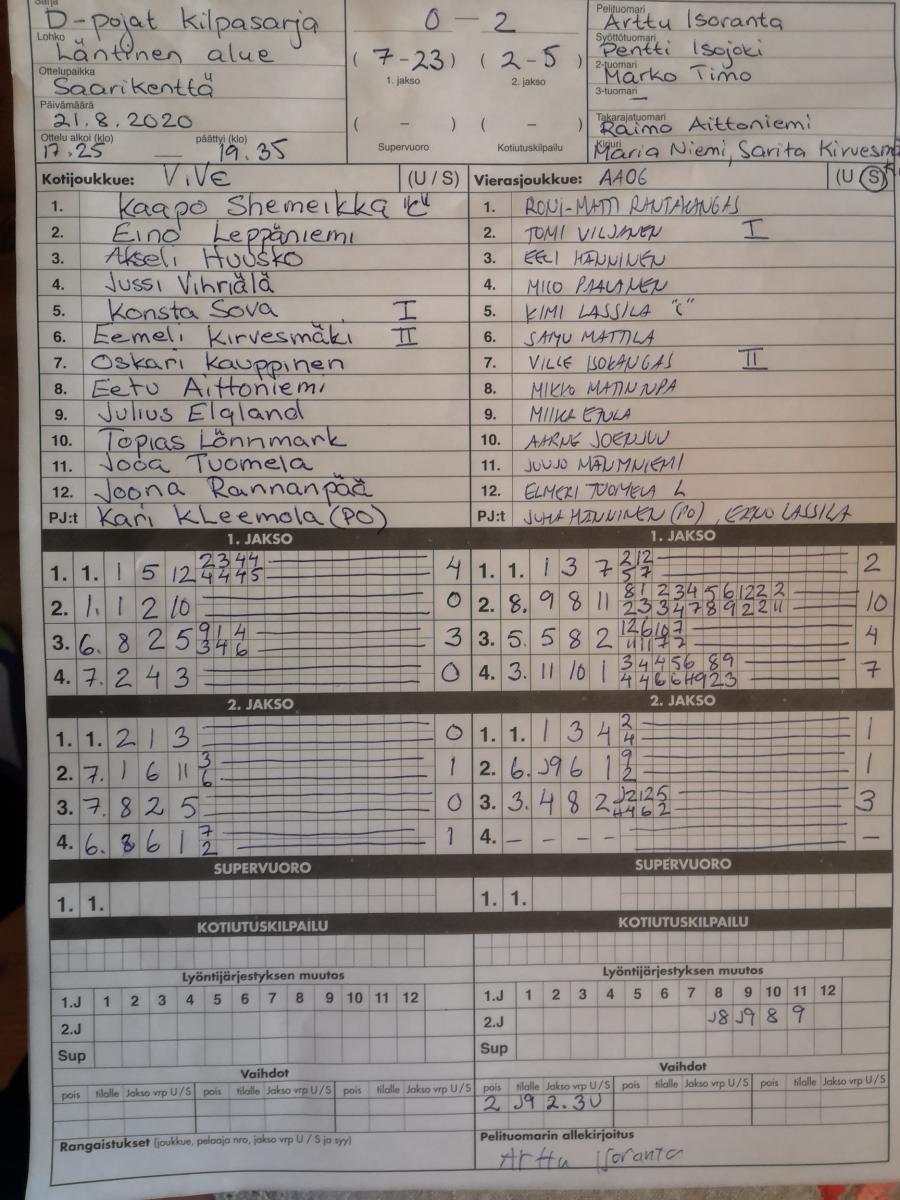 Sarja
D-pojat Kilpasarja
Lohko
Läntinen alue
Ottelupaikka
Saarikenttä
Päivämäärä
21.8.2020
Ottelu alkoi (klo) päättyi (klo)
17.25 — 19.35
0 - 2
(7-23) (2-5)
1. jakso 2. jakso
( - ) ( - )
Supervuoro Kotiutuskilpailu
Pelituomari
Arttu Isoranta
Syöttötuomari
Pentti Isojoki
2-tuomari
Marko Timo
3-tuomari
—
Takarajatuomari
Raimo Aittoniemi
Kirjuri
Maria Niemi, Sarita Kirvesmä
Kotijoukkue: ViVe (U / S)
1. Kaapo Shemeikka "C"
2. Eino Leppäniemi
3. Akseli Huusko
4. Jussi Vihriälä
5. Konsta Sova I
6. Eemeli Kirvesmäki II
7. Oskari Kauppinen
8. Eetu Aittoniemi
9. Julius Elgland
10. Topias Lönnmark
11. Jooa Tuomela
12. Joona Rannanpää
PJ:t Kari Kleemola (PO)
Vierasjoukkue: AA06 (U / S)
1. RONI-MATTI RANTAKANGAS
2. TOMI VILJANEN I
3. EELI HÄNNINEN
4. MICO PAALANEN
5. KIMI LASSILA "C"
6. SAMU MATTILA
7. VILLE ISOKANGAS II
8. MIKKO
9. MIIKA
10. AARNE JOENSUU
11. JUUJO
12. ELMERI TUOMELA L
PJ:t JUHA HÄNNINEN (PO), ERNO LASSILA
1. JAKSO
1. 1. 1 5 12 2 3 4 4 4
4 4 4 5
2. 1. 1 2 10 0
3. 6. 8 2 5 9 1 4 3
3 4 6
4. 7. 2 4 3 0
1. JAKSO
1. 1. 1 3 7 2 12 2
5 7
2. 8. 9 8 11 8 1 2 3 4 5 6 12 2 2 10
2 3 3 4 7 8 9 2 2 11
3. 5. 5 8 2 12 6 10 7 4
11 11 7 2
4. 3. 11 10 1 3 4 4 5 6 8 9 7
4 4 6 6 9 2 3
2. JAKSO
1. 1. 2 1 3 0
2. 7. 1 6 11 3 1
6
3. 7. 8 2 5 0
4. 6. 8 6 1 7 1
2
2. JAKSO
1. 1. 1 3 4 2 1
4
2. 6. J9 6 1 9 1
2
3. 3. 4 8 2 J2 12 5 3
4 4 6 2
4. – – – – –
SUPERVUORO
1. 1.
SUPERVUORO
1. 1.
KOTIUTUSKILPAILU
KOTIUTUSKILPAILU
Lyöntijärjestyksen muutos
1.J 1 2 3 4 5 6 7 8 9 10 11 12
2.J
Sup
Lyöntijärjestyksen muutos
1.J 1 2 3 4 5 6 7 8 9 10 11 12
2.J J8 J9 8 9
Sup
Vaihdot
pois tilalle Jakso vrp U / S pois tilalle Jakso vrp U / S pois tilalle Jakso vrp U / S
Vaihdot
pois tilalle Jakso vrp U / S pois tilalle Jakso vrp U / S pois tilalle Jakso vrp U / S
2 J9 2.3U
Rangaistukset (joukkue, pelaaja nro, jakso vrp U / S ja syy)
Pelituomarin allekirjoitus
Arttu Isoranta